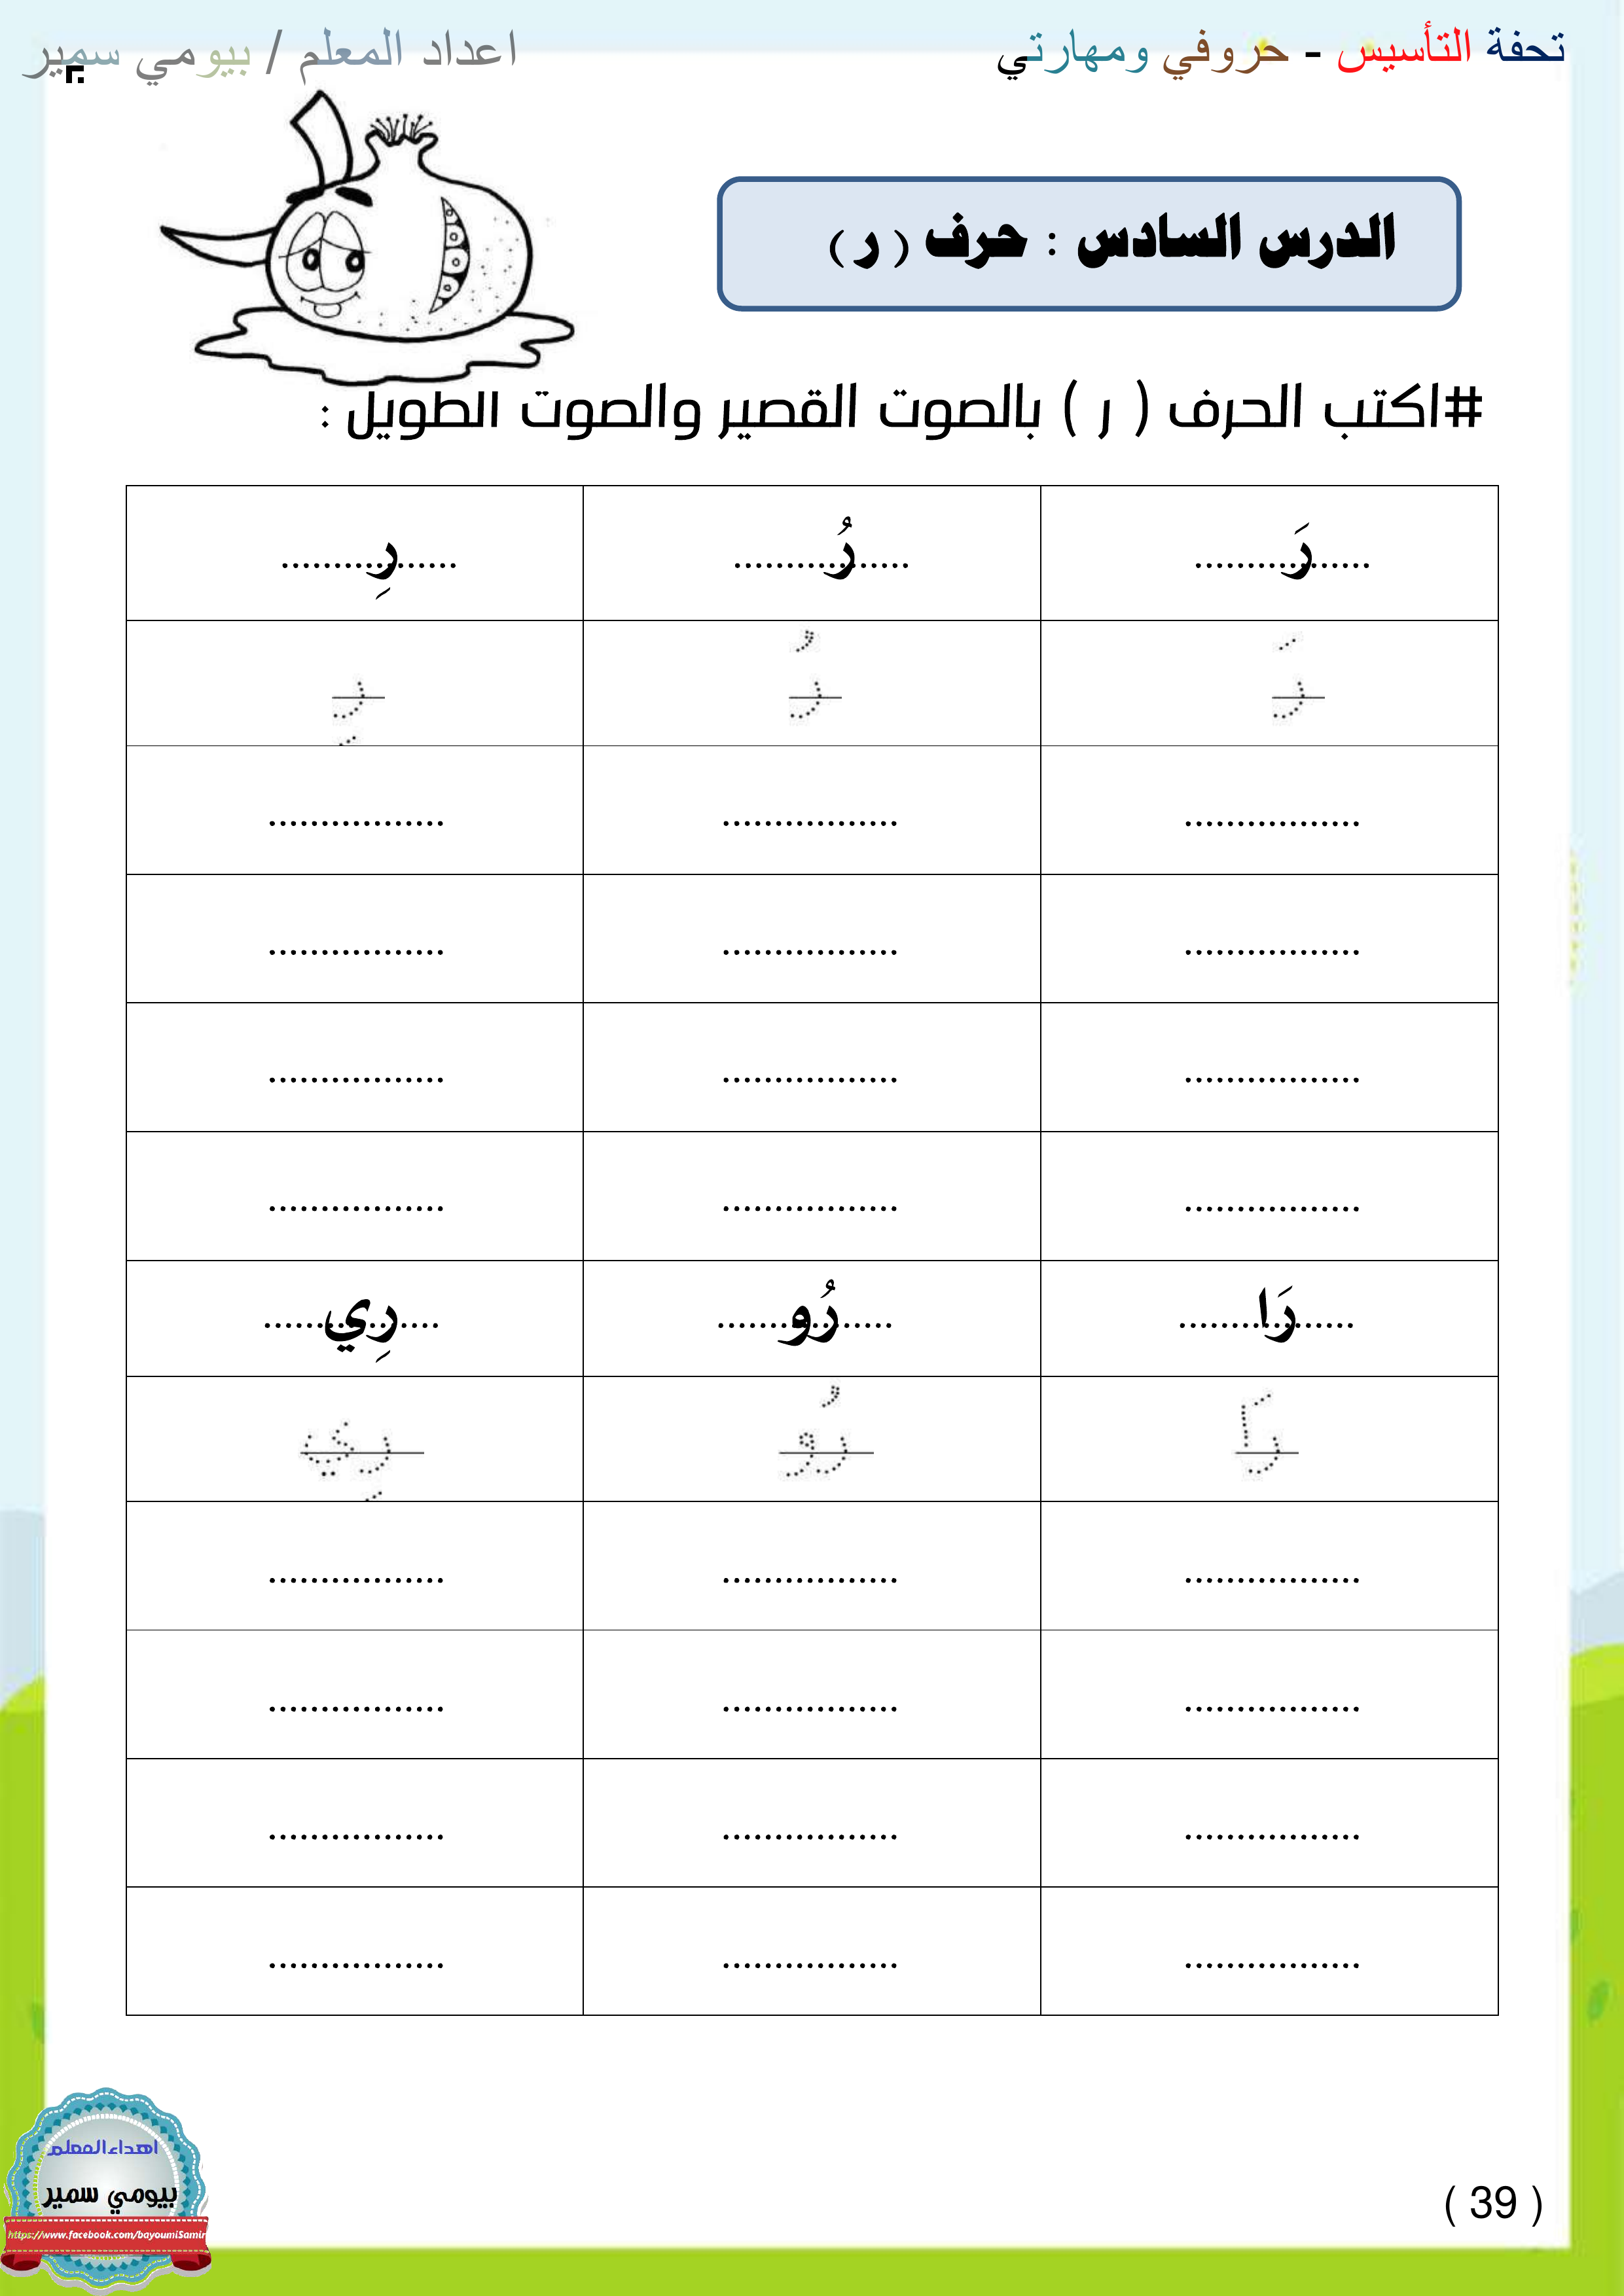 تحفة التأسيس - حروفي ومهارتي
اعداد المعلم / بيومي سمير
الدرس السادس : حرف ( ر )
#اكتب الحرف ( ر ) بالصوت القصير والصوت الطويل :
رَ................. رُ................. رِ.................
رَ رُ رِ
................. ................. .................
................. ................. .................
................. ................. .................
................. ................. .................
رَا................. رُو................. رِي.................
رَا رُو رِي
................. ................. .................
................. ................. .................
................. ................. .................
................. ................. .................
اهداء المعلم
بيومي سمير
https://www.facebook.com/bayoumiSamir
( 39 )